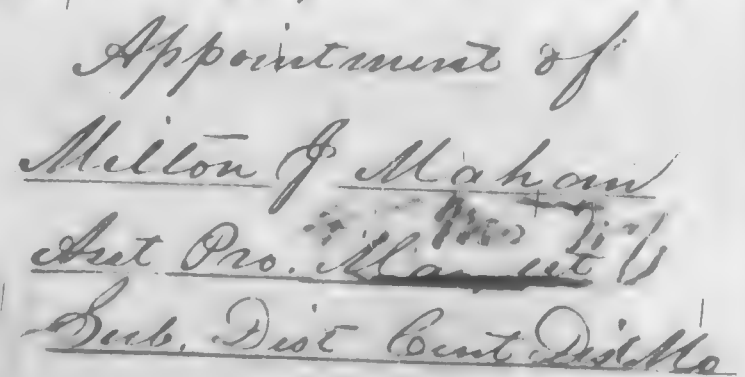 Appointment of
Milton J Mahan
Asst Pro. Mar
Sub. Dist Cent Dist Mo